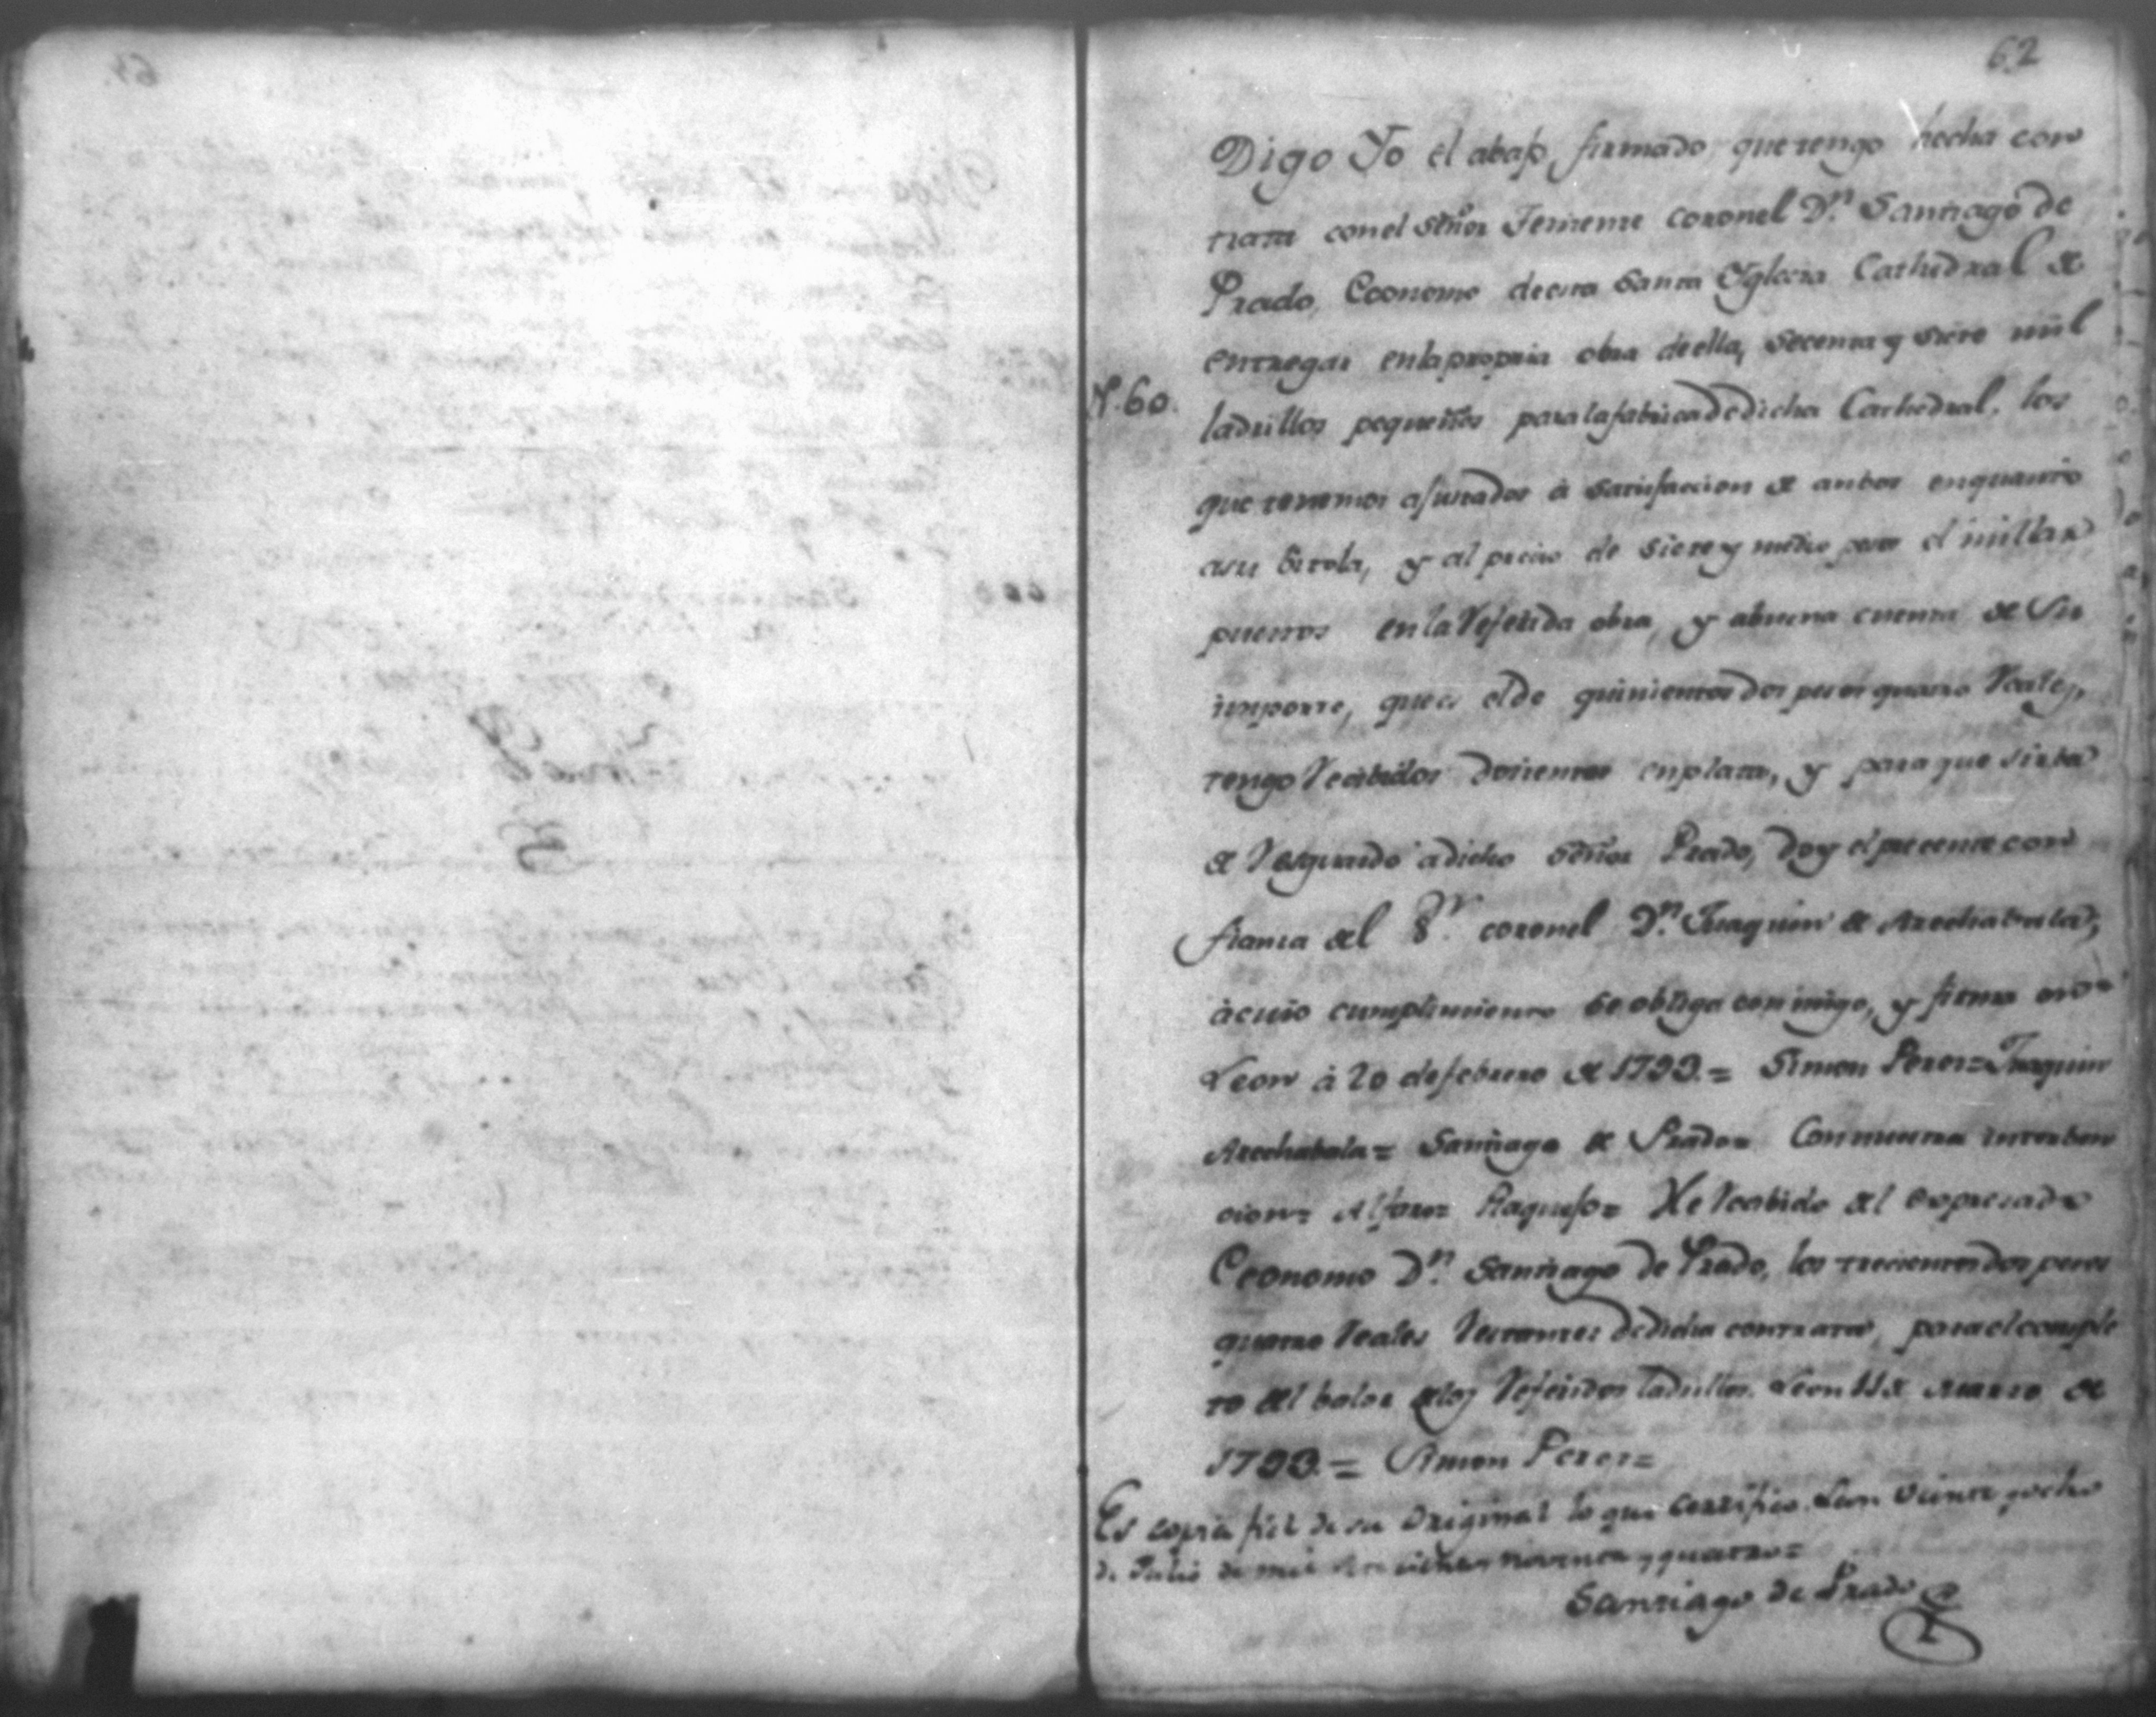 62
Digo Yo el abajo firmado, que tengo hecha con
trata con el Señor Teniente coronel Dn. Santiago de
Prado, Economo de esta Santa Yglecia Cathedral de
entregar en la propria obra de ella, secenta y siete mil
N. 60.
ladrillos pequeños para la fabrica de dicha Cathedral, los
que tenemos ajustados à satisfaccion de anbos en quanto
asu bitola, y al precio de siete y medio pesos el millar
puestos en la referida obra, y abuena cuenta de su
importe, que es el de quinientos dos pesos quatro reales,
tengo recibidos docientos en plata, y para que sirba
de resguardo adicho Señor Prado, doy el precente con
fianza del Sr. coronel Dn. Juaquin de Arechabala,
à cuio cumplimiento se obliga conmigo, y firma en
Leon à 20 de febrero de 1793.= Simon Perez= Juaquin
Arechabala= Santiago de Prado= Con nuestra interben
cion= Alfaro= Raquejo= He recibido del expresado
Economo Dn. Santiago de Prado, los trecientos dos pesos
quatro reales restantes de dicha contrata, para el comple
to del balor de los referidos ladrillos. Leon 11 de Marzo de
1793.= Simon Perez=
Es copia fiel de su Original lo que Certifico. Leon veinte y ocho
de Julio de mil setecientos noventa y quatro=
Santiago de Prado